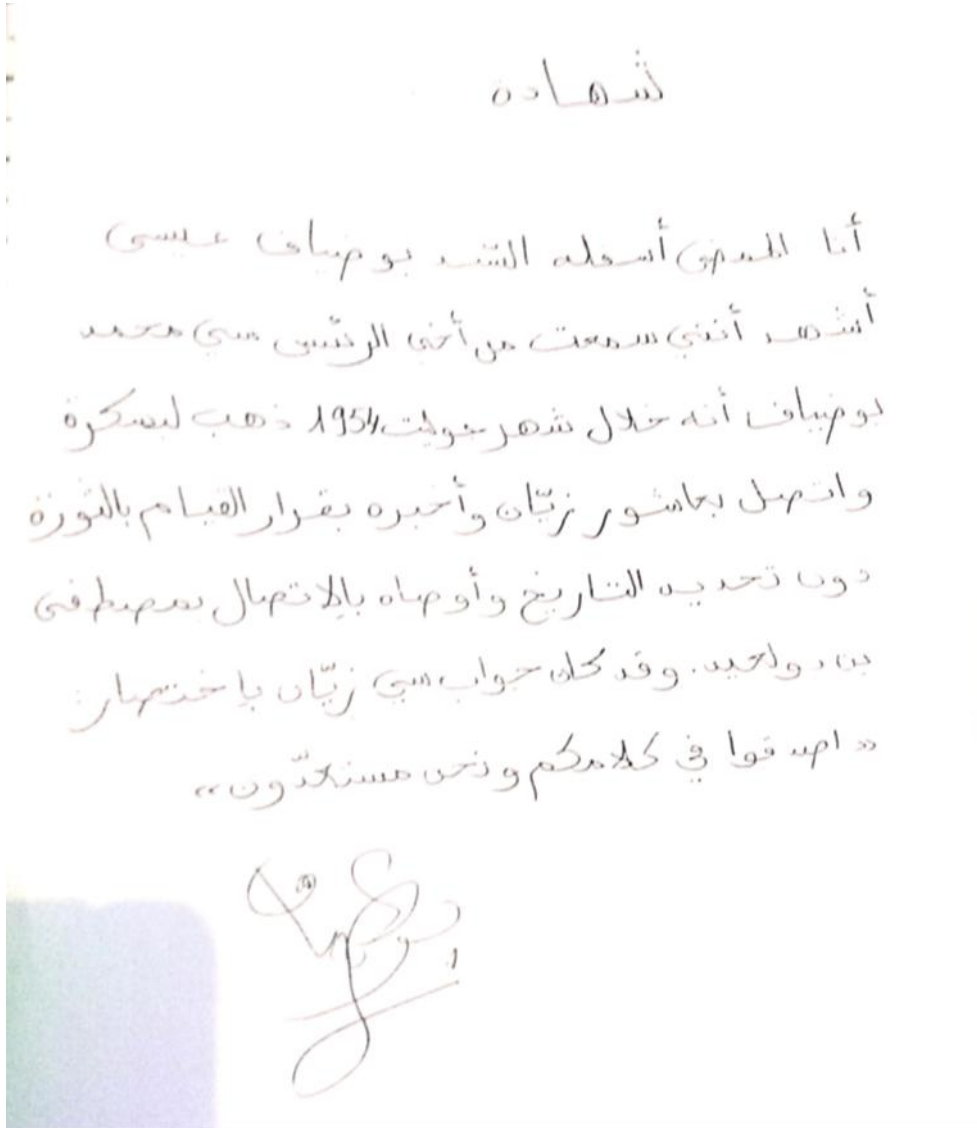 شهادة
أنا الممضي أسفله السيد بوضياف عيسى
أشهد أنني سمعت من أخي الرئيس سي محمد
بوضياف أنه خلال شهر جويلت 1954 ذهب لبسكرة
واتصل بعاشور زيّان وأخبره بقرار القيام بالثورة
دون تحديد التاريخ وأوصاه بالإتصال بمصطفى
بن بولعيد. وقد كان جواب سي زيّان بإختصار:
«اصدقوا في كلامكم ونحن مستعدّون»